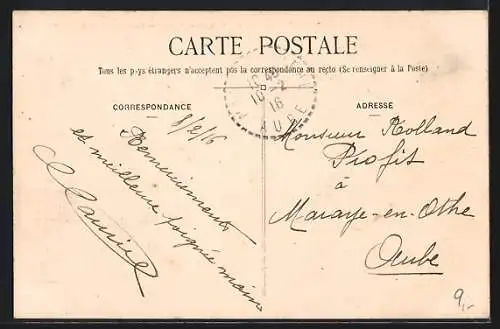 CARTE POSTALE
Tous les pays étrangers n'acceptent pas la correspondance au recto (Se renseigner à la Poste)
CORRESPONDANCE
8/2/16
Remerciements
et meilleure poignée main
ADRESSE
Monsieur Rolland
Profit
à
Maraye-en-Othe
Aube
10 -2
16
AUBE
9,-